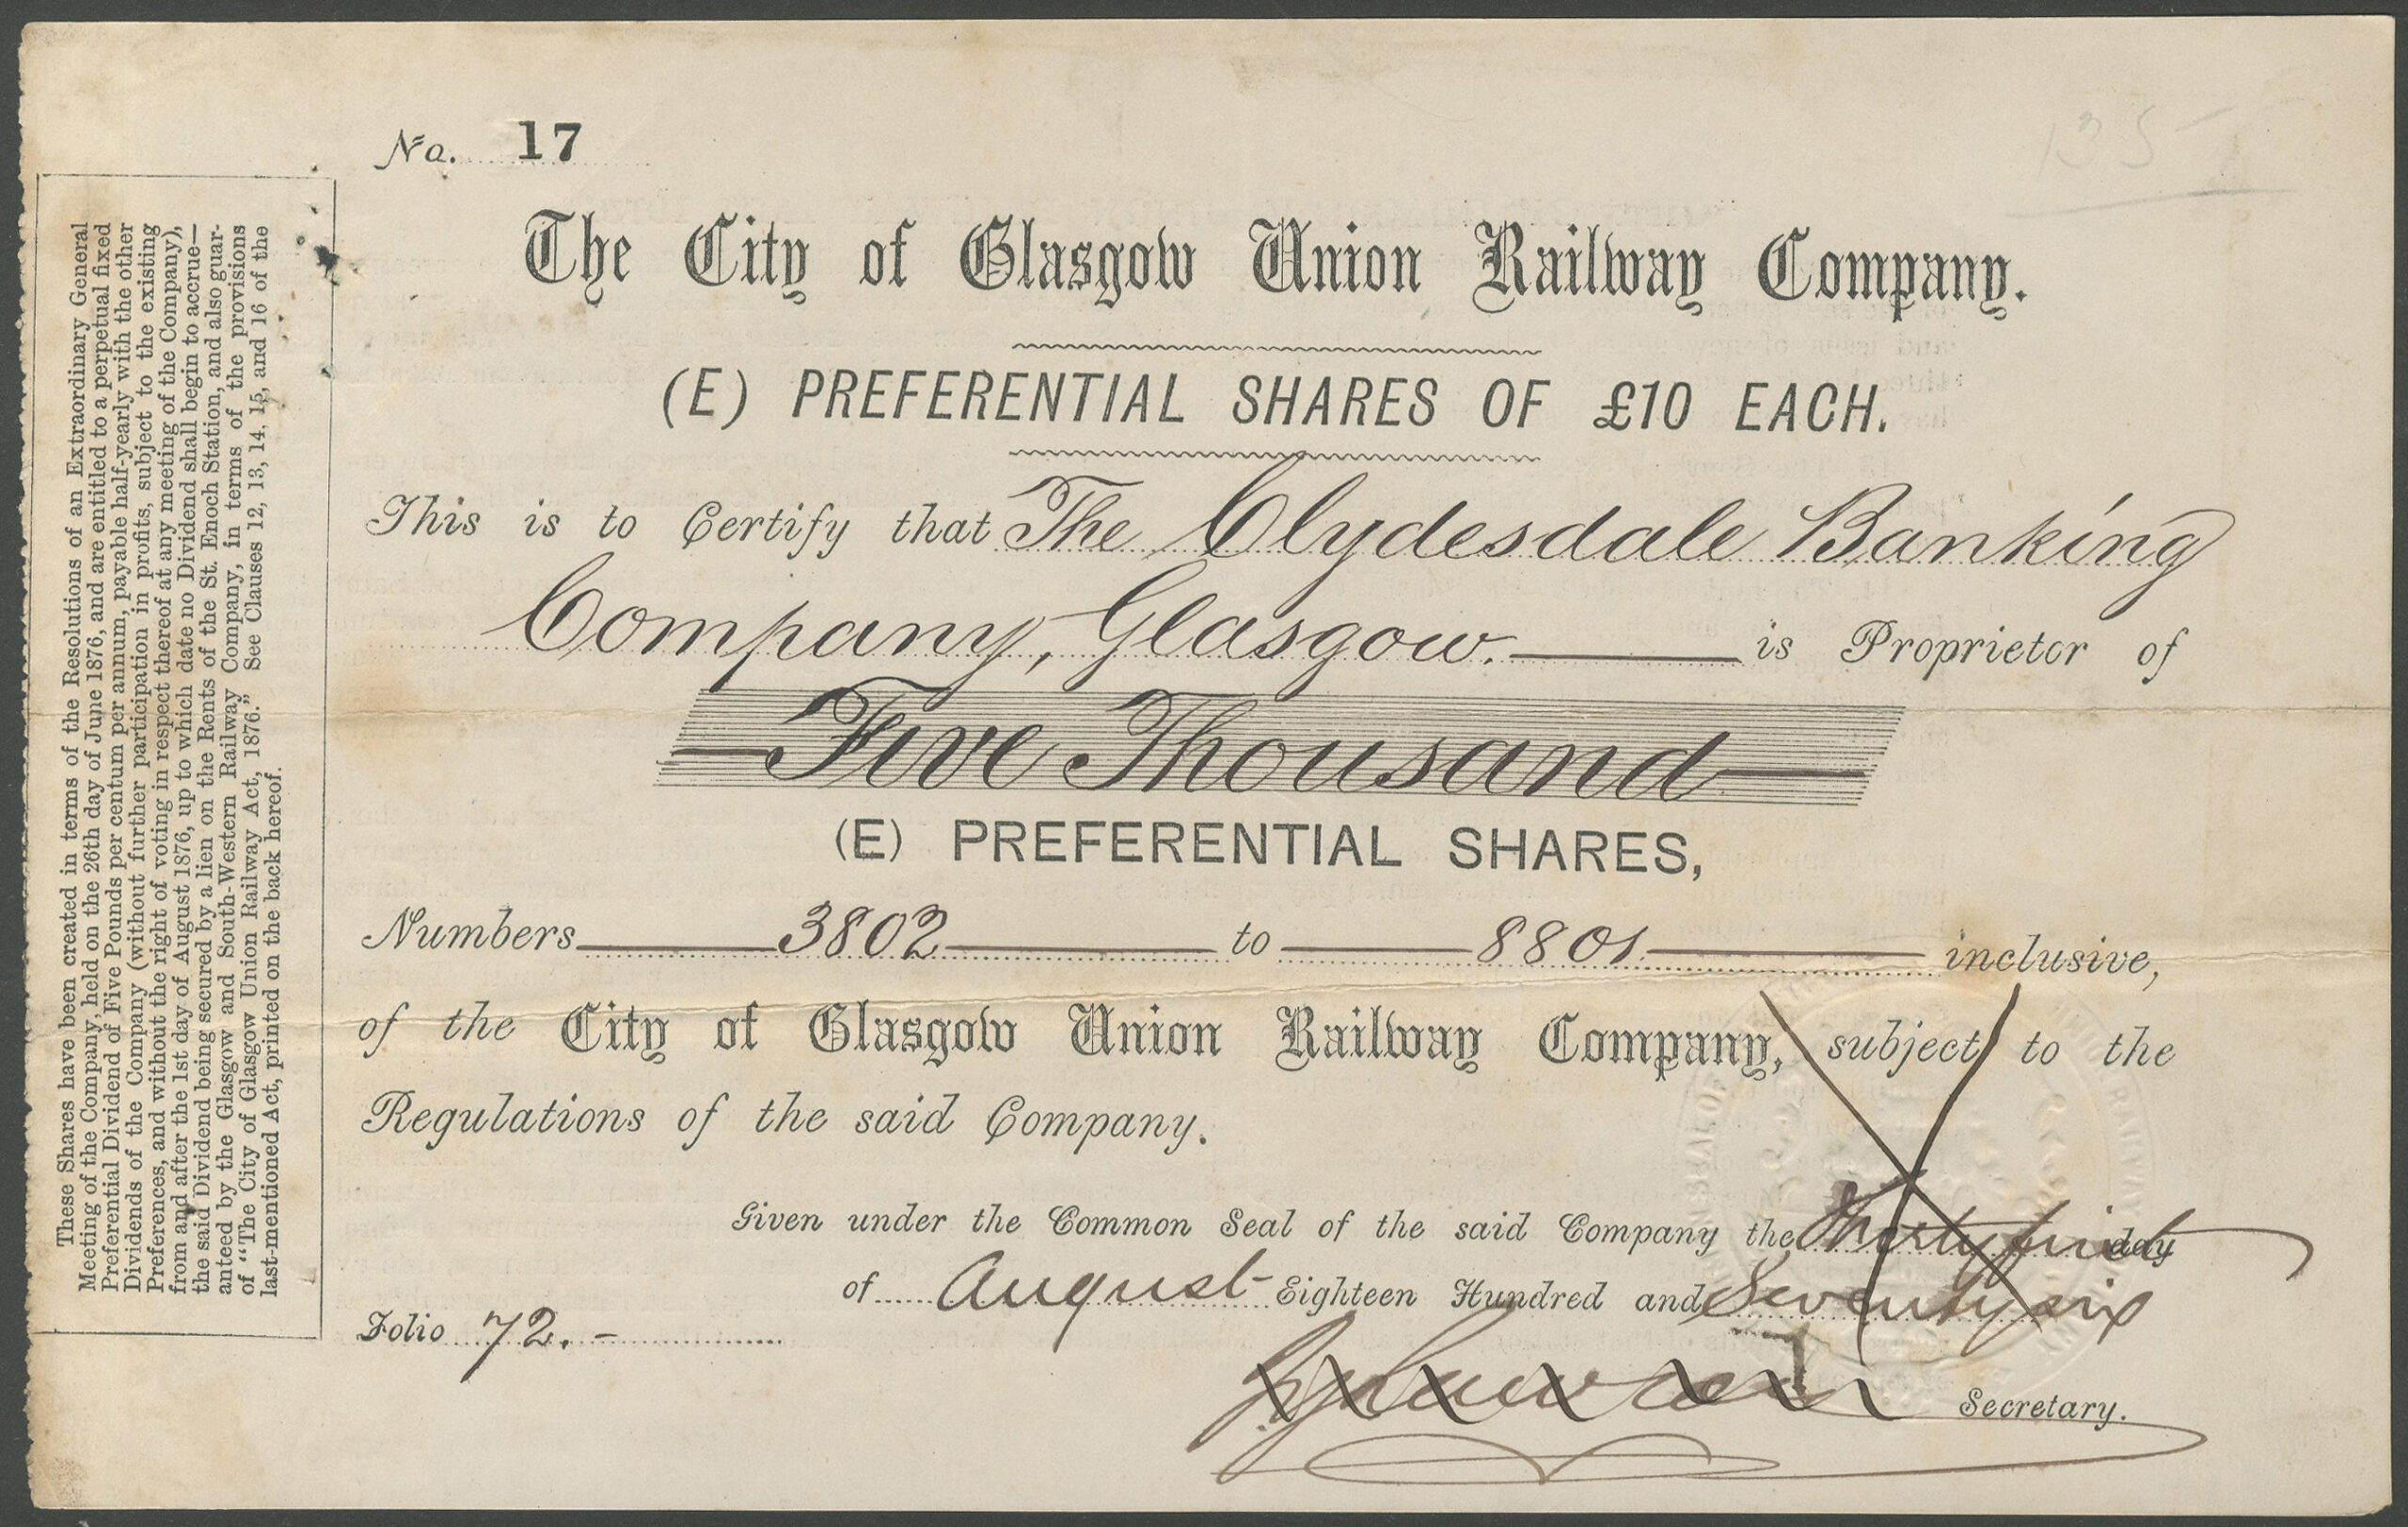 No. 17
The City of Glasgow Union Railway Company.
(E) PREFERENTIAL SHARES OF £10 EACH.
This is to Certify that The Clydesdale Banking
Company, Glasgow. is Proprietor of
Five Thousand
(E) PREFERENTIAL SHARES,
Numbers 3802 to 8801 inclusive,
of the City of Glasgow Union Railway Company, subject to the
Regulations of the said Company.
Given under the Common Seal of the said Company the Thirty first day
of August Eighteen Hundred and Seventy six
Folio 72.-
Secretary.
These Shares have been created in terms of the Resolutions of an Extraordinary General
Meeting of the Company, held on the 26th day of June 1876, and are entitled to a perpetual fixed
Preferential Dividend of Five Pounds per centum per annum, payable half-yearly with the other
Dividends of the Company (without further participation in profits, subject to the existing
Preferences, and without the right of voting in respect thereof at any meeting of the Company),
from and after the 1st day of August 1876, up to which date no Dividend shall begin to accrue—
the said Dividend being secured by a lien on the Rents of the St. Enoch Station, and also guar-
anteed by the Glasgow and South-Western Railway Company, in terms of the provisions
of "The City of Glasgow Union Railway Act, 1876." See Clauses 12, 13, 14, 15, and 16 of the
last-mentioned Act, printed on the back hereof.
135